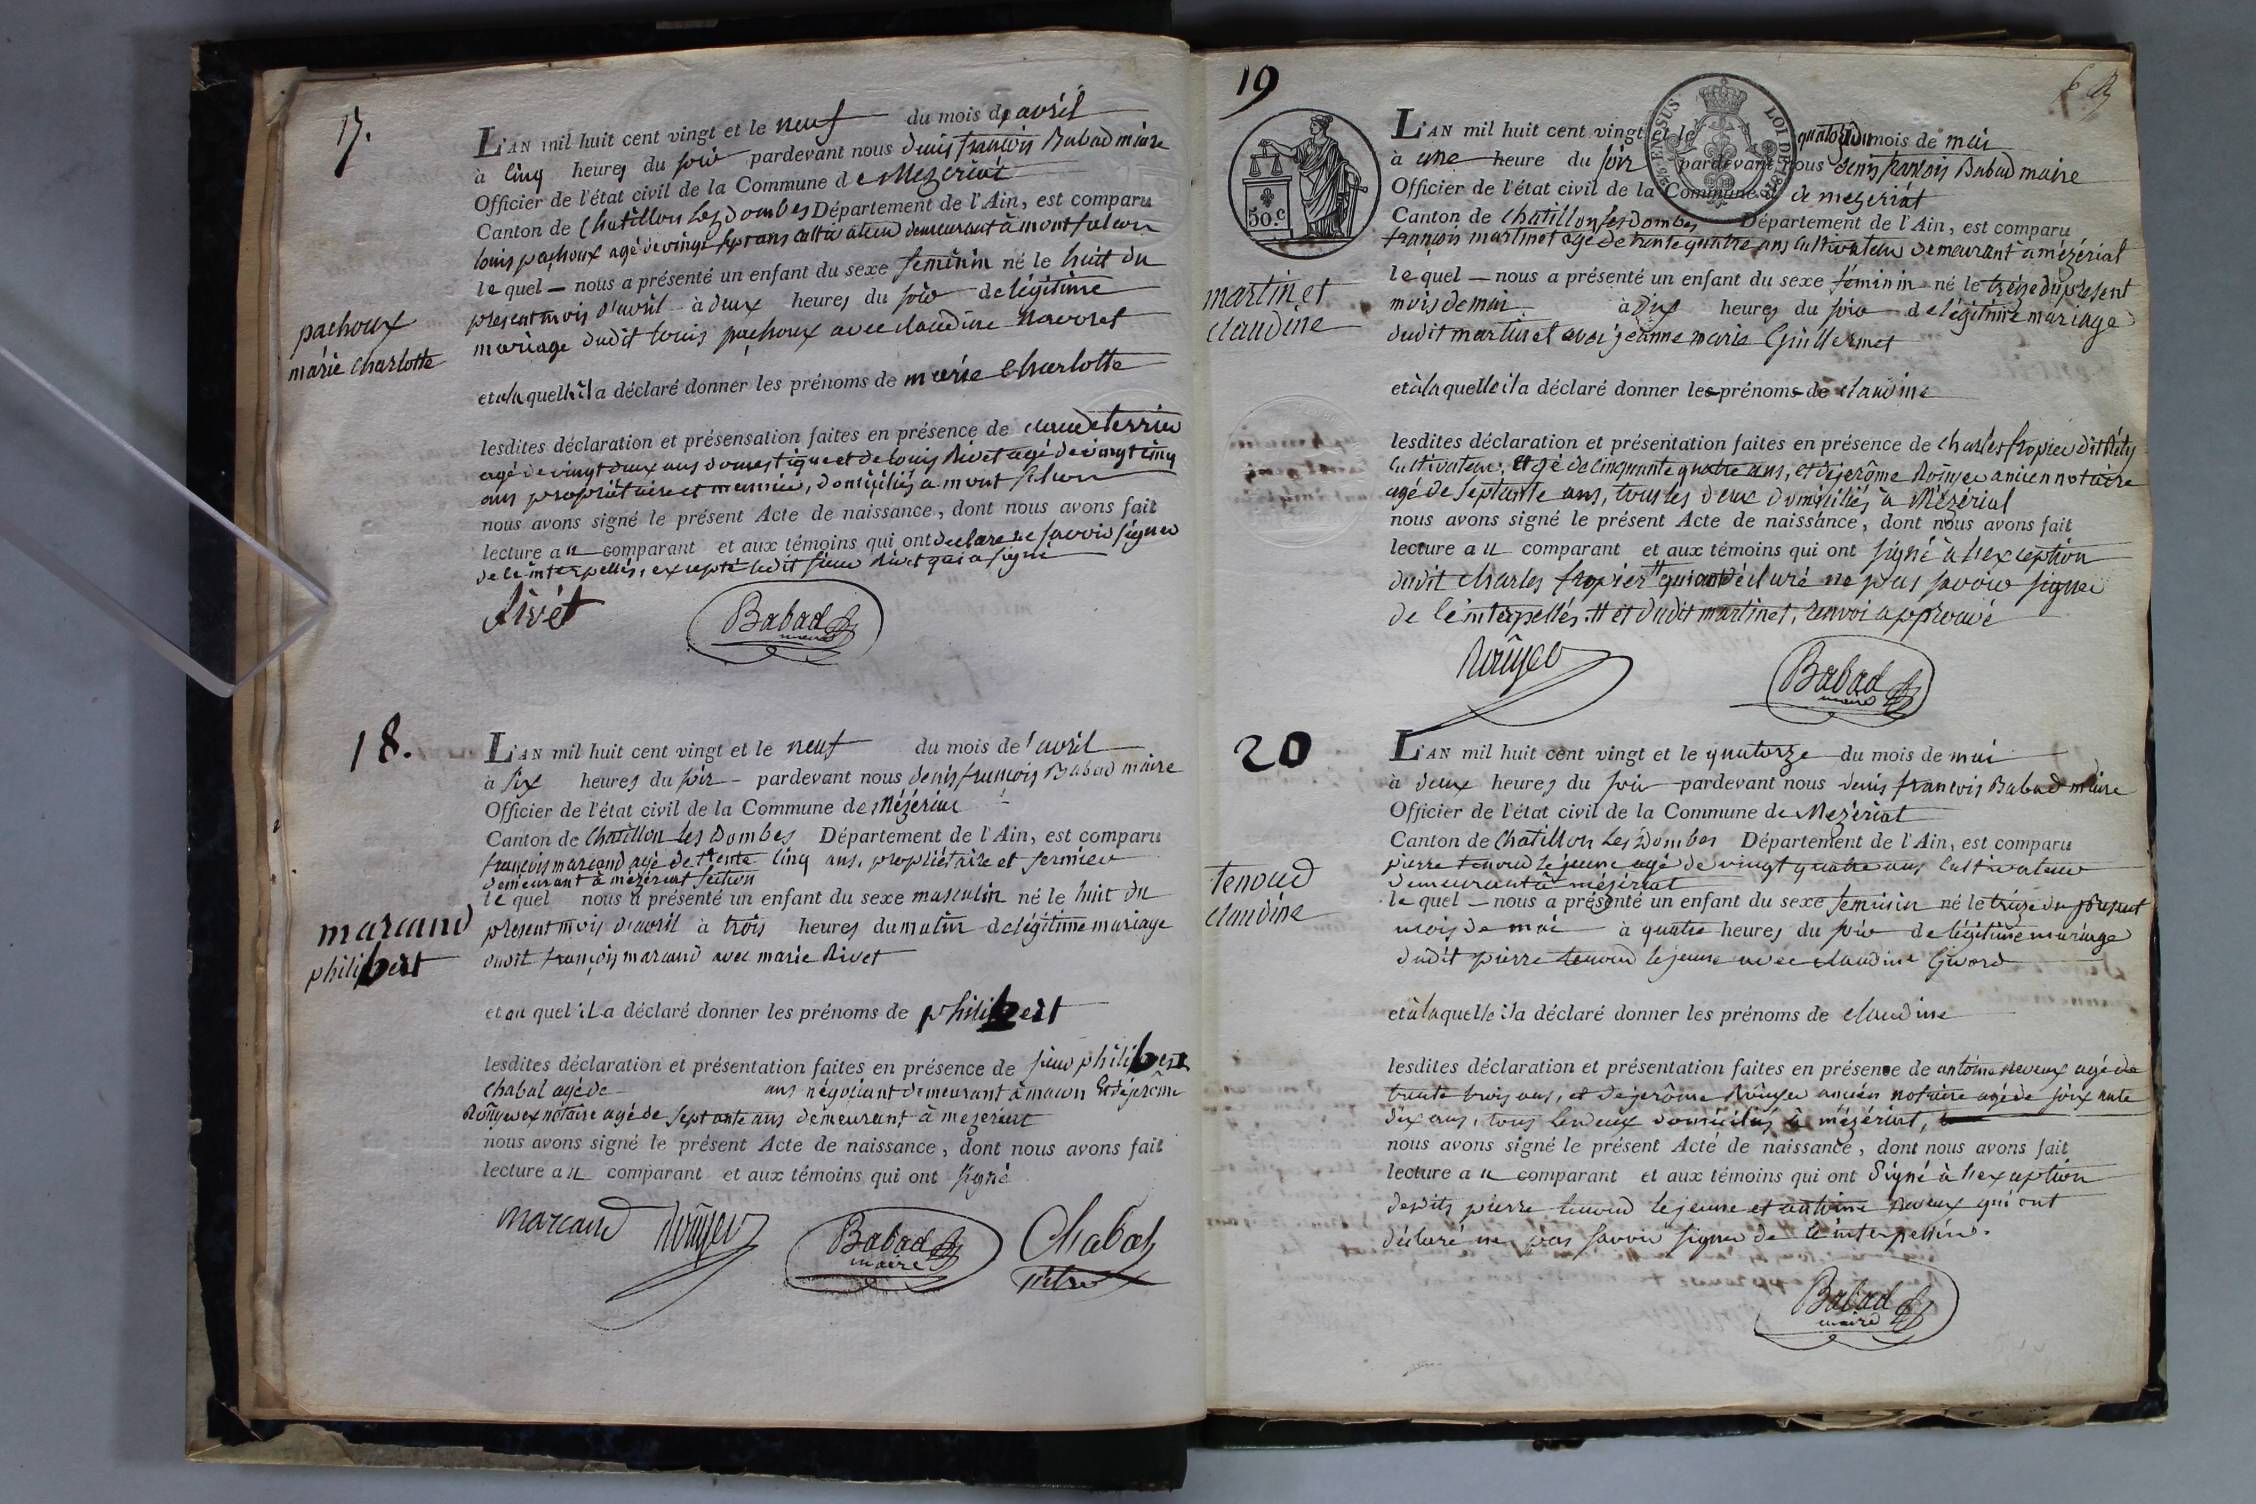 17.
L'AN mil huit cent vingt et le neuf du mois d'avril
à cinq heures du soir pardevant nous denis françois Babad maire
Officier de l'état civil de la Commune de Mezeriat
Canton de Chatillon Les Dombes Département de l'Ain, est comparu
louis pachoux agé de vingt sept ans cultivateur demeurant à montfalcon
lequel nous a présenté un enfant du sexe feminin né le huit du
présent mois d'avril à deux heures du soir de légitime
mariage dudit louis pachoux avec claudine navoret
pachoux
marie charlotte
et à laquelle il a déclaré donner les prénoms de marie Charlotte
lesdites déclaration et présensation faites en présence de claude terrier
agé de vingt deux ans domestique et de louis Rivet agé de vingt cinq
ans propriétaire et meunier, domiciliés a mont falcon
nous avons signé le présent Acte de naissance, dont nous avons fait
lecture au comparant et aux témoins qui ont declaré ne savoir signer
de ce interpellés, excepté ledit sieur Rivet qui a signé
Rivet Babad maire
18.
L'AN mil huit cent vingt et le neuf du mois de avril
à six heures du soir pardevant nous denis françois Babad maire
Officier de l'état civil de la Commune de Mézériat
Canton de Chatillon les Dombes Département de l'Ain, est comparu
françois marcand agé de trente cinq ans, propriétaire et fermier
demeurant à mézériat section
lequel nous a présenté un enfant du sexe masculin né le huit du
présent mois d'avril à trois heures du matin de légitime mariage
dudit françois marcand avec marie Rivet
marcand
philibert
et au quel il a déclaré donner les prénoms de philibert
lesdites déclaration et présentation faites en présence de sieur philibert
Chabal agé de ans négociant demeurant à macon Et de jerôme
Roüyer ex notaire agé de septante ans demeurant à mezeriat
nous avons signé le présent Acte de naissance, dont nous avons fait
lecture au comparant et aux témoins qui ont signé
marcand Roüyer Babad maire Chabal
19
50.c
LOI DE
L'AN mil huit cent vingt et le quatorze du mois de mai
à une heure du soir pardevant nous denis françois Babad maire
Officier de l'état civil de la Commune de mezeriat
Canton de Chatillon les Dombes Département de l'Ain, est comparu
françois martinet agé de trente quatre ans cultivateur demeurant à mézériat
lequel nous a présenté un enfant du sexe féminin né le treize du présent
mois de mai à dix heures du soir de légitime mariage
dudit martinet avec jeanne marie Guillermet
martinet
claudine
et à laquelle il a déclaré donner les prénoms de claudine
lesdites déclaration et présentation faites en présence de charles fropier dit
cultivateur, agé de cinquante quatre ans, et de jerôme Roüyer ancien notaire
agé de septante ans, tous les deux domiciliés à Mézériat
nous avons signé le présent Acte de naissance, dont nous avons fait
lecture au comparant et aux témoins qui ont signé à l'exception
dudit charles fropier # qui ont déclaré ne pas savoir signer
de ce interpellés. # et dudit martinet, renvoi approuvé
Roüyer Babad maire
20
L'AN mil huit cent vingt et le quatorze du mois de mai
à deux heures du soir pardevant nous denis françois Babad maire
Officier de l'état civil de la Commune de Mezériat
Canton de Chatillon Les Dombes Département de l'Ain, est comparu
pierre tenoud le jeune agé de vingt quatre ans cultivateur
demeurant à mézériat
lequel nous a présenté un enfant du sexe feminin né le treize du présent
mois de mai à quatre heures du soir de légitime mariage
dudit pierre tenoud le jeune avec claudine Givord
tenoud
claudine
et à laquelle il a déclaré donner les prénoms de claudine
lesdites déclaration et présentation faites en présence de antoine neveux agé de
trente trois ans, et de jerôme Roüyer ancien notaire agé de soixante
dix ans, tous les deux domiciliés à mézériat,
nous avons signé le présent Acte de naissance, dont nous avons fait
lecture au comparant et aux témoins qui ont Signé à l'exception
desdits pierre tenoud le jeune et antoine neveux qui ont
déclaré ne pas savoir signer de ce interpellés.
Babad maire